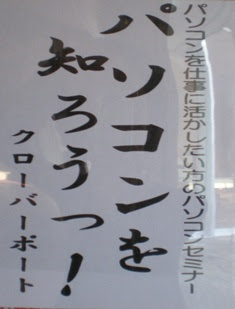 パソコンを仕事に活かしたい方のパソコンセミナー
パソコンを
知ろうっ!
クローバーポート